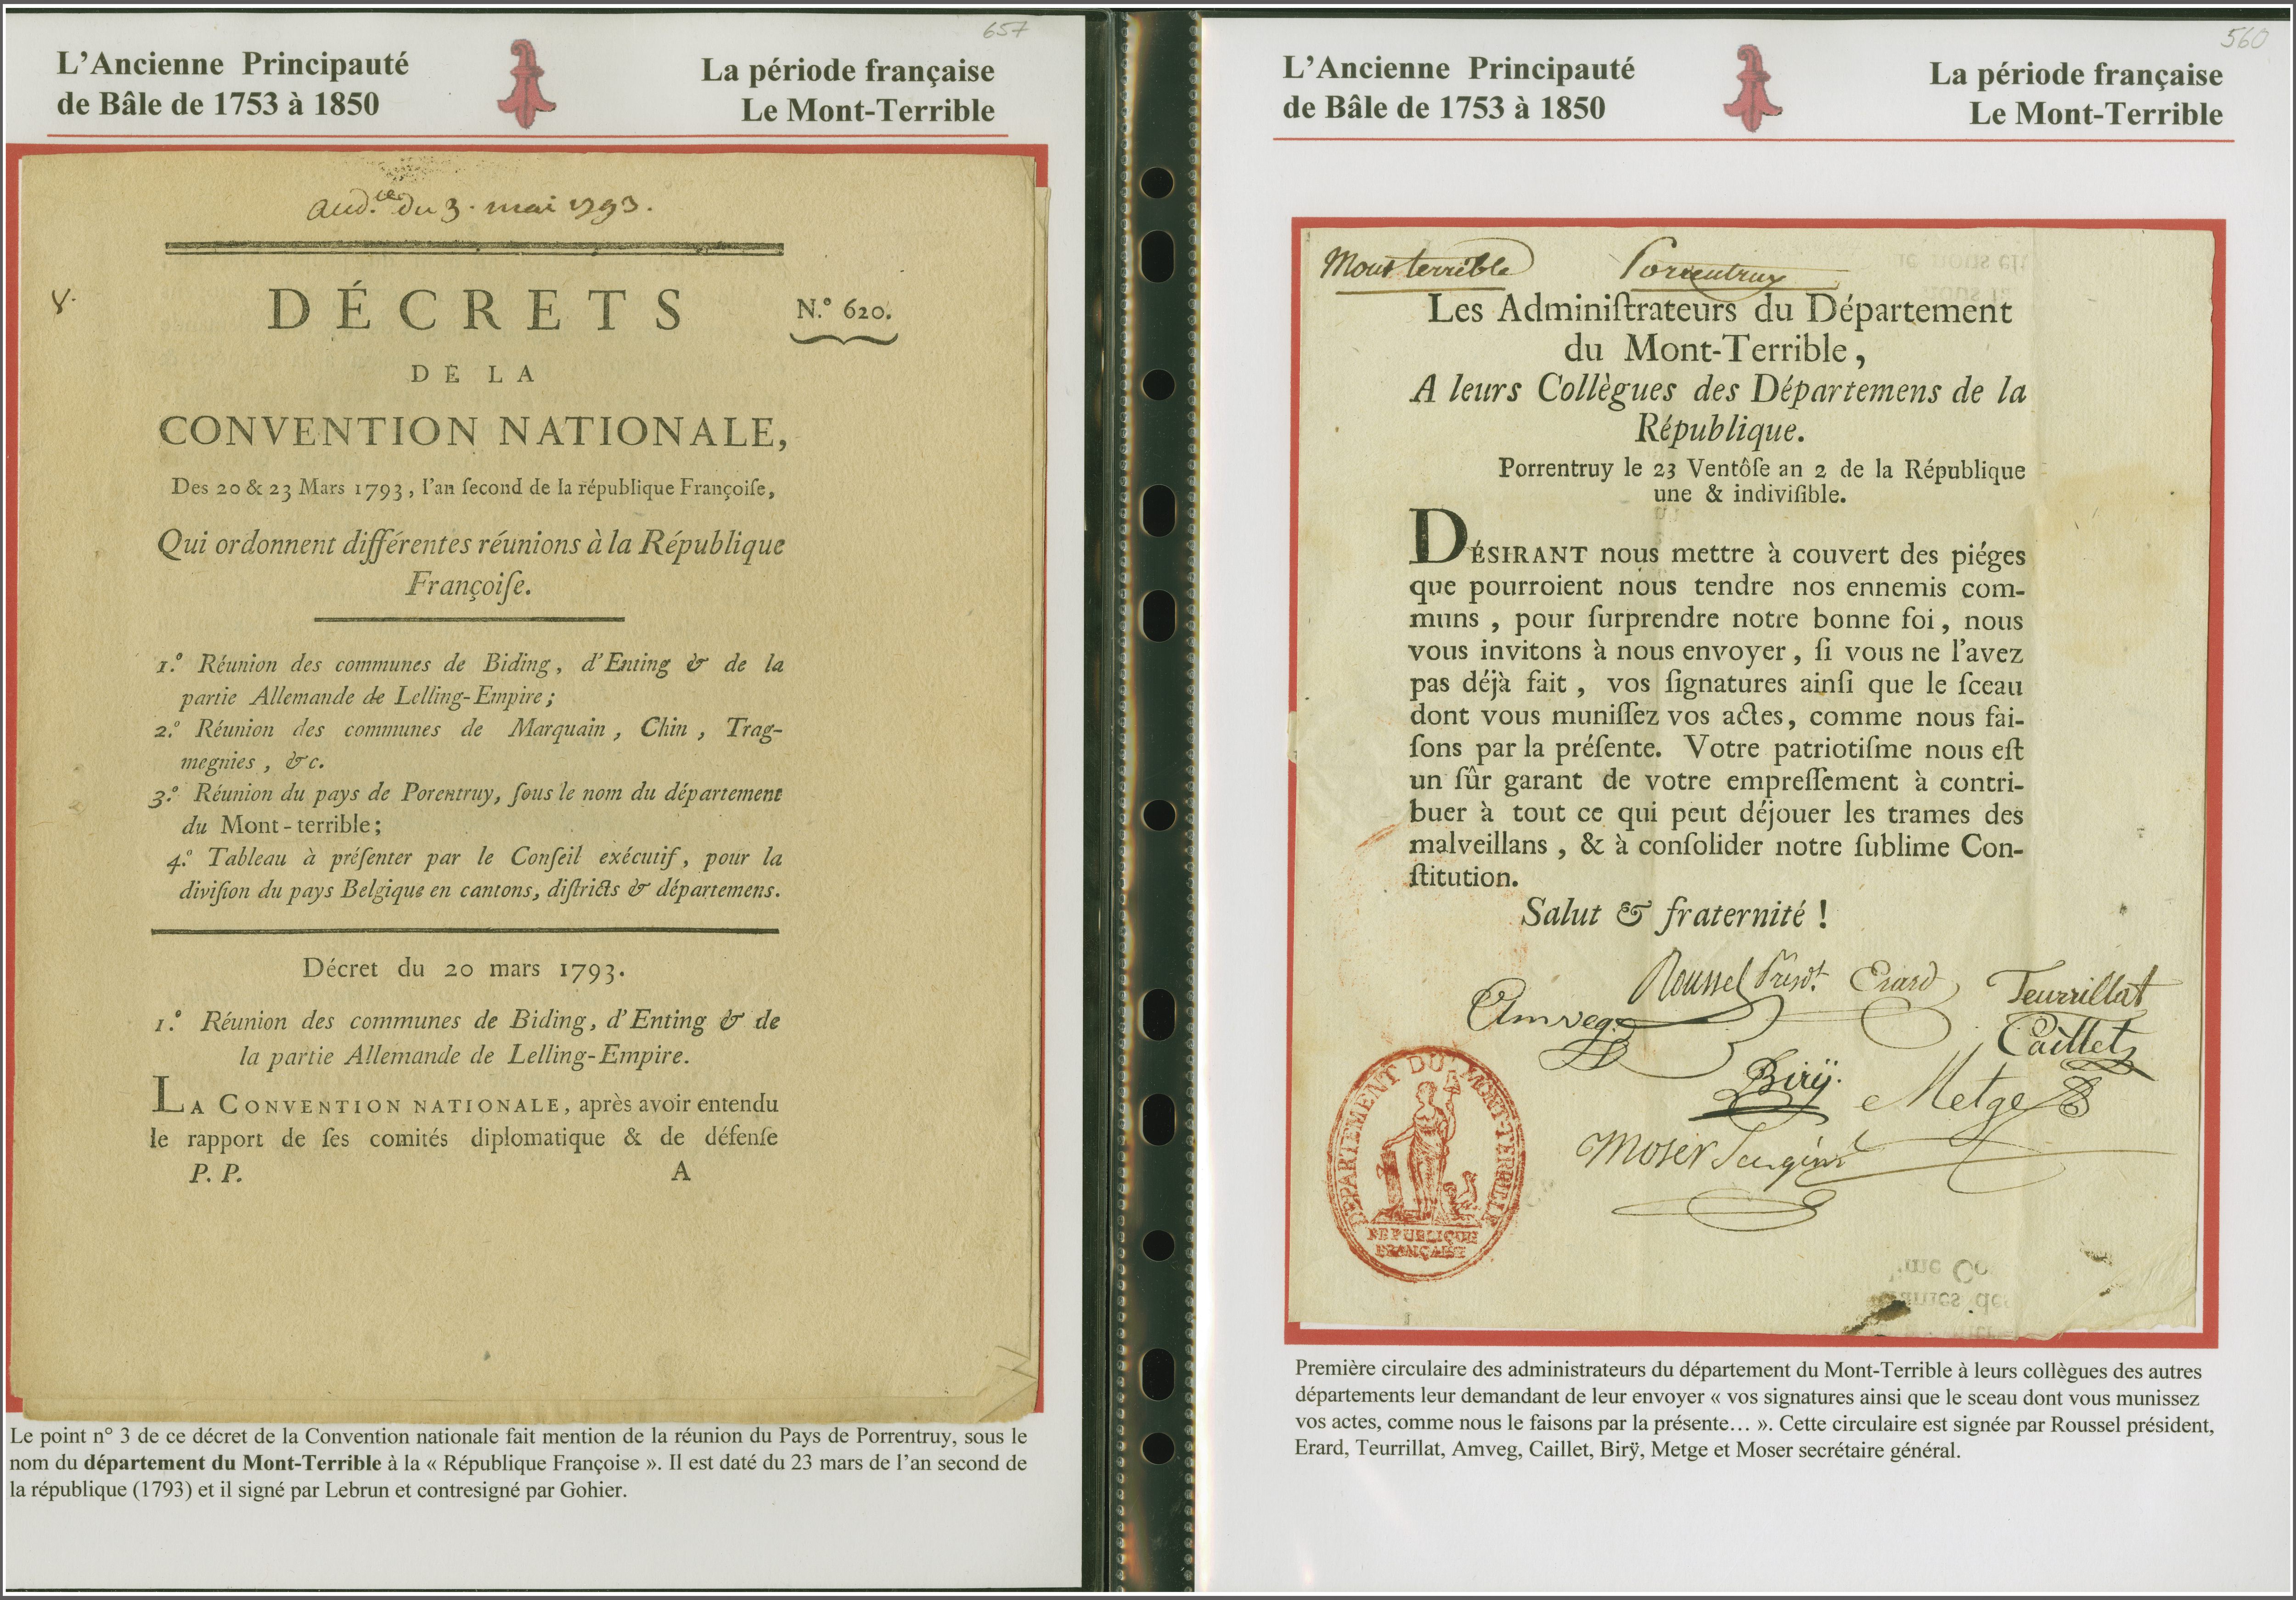 657
L'Ancienne Principauté
de Bâle de 1753 à 1850
La période française
Le Mont-Terrible
aud.ce du 3. mai 1793.
8.
DÉCRETS
N.° 620.
DE LA
CONVENTION NATIONALE,
Des 20 & 23 Mars 1793, l'an ſecond de la république Françoiſe,
Qui ordonnent différentes réunions à la République
Françoiſe.
1.° Réunion des communes de Biding, d'Enting & de la
partie Allemande de Lelling-Empire;
2.° Réunion des communes de Marquain, Chin, Trag-
megnies, &c.
3.° Réunion du pays de Porentruy, ſous le nom du département
du Mont-terrible;
4.° Tableau à préſenter par le Conſeil exécutif, pour la
diviſion du pays Belgique en cantons, diſtricts & départemens.
Décret du 20 mars 1793.
1.° Réunion des communes de Biding, d'Enting & de
la partie Allemande de Lelling-Empire.
LA CONVENTION NATIONALE, après avoir entendu
le rapport de ſes comités diplomatique & de défenſe
P. P. A
Le point n° 3 de ce décret de la Convention nationale fait mention de la réunion du Pays de Porrentruy, sous le
nom du département du Mont-Terrible à la « République Françoise ». Il est daté du 23 mars de l'an second de
la république (1793) et il signé par Lebrun et contresigné par Gohier.
560
L'Ancienne Principauté
de Bâle de 1753 à 1850
La période française
Le Mont-Terrible
Mont terrible Porrentruy
Les Adminiſtrateurs du Département
du Mont-Terrible,
A leurs Collègues des Départemens de la
République.
Porrentruy le 23 Ventôſe an 2 de la République
une & indiviſible.
DÉSIRANT nous mettre à couvert des piéges
que pourroient nous tendre nos ennemis com-
muns, pour ſurprendre notre bonne foi, nous
vous invitons à nous envoyer, ſi vous ne l'avez
pas déjà fait, vos ſignatures ainſi que le ſceau
dont vous muniſſez vos actes, comme nous fai-
ſons par la préſente. Votre patriotiſme nous eſt
un ſûr garant de votre empreſſement à contri-
buer à tout ce qui peut déjouer les trames des
malveillans, & à conſolider notre ſublime Con-
ſtitution.
Salut & fraternité !
Roussel Présdt. Erard Teurrillat
Amveg Caillet
Birÿ. Metge
Moser
DEPARTEMENT DU MONT-TERRIBLE
REPUBLIQUE
FRANÇAISE
Première circulaire des administrateurs du département du Mont-Terrible à leurs collègues des autres
départements leur demandant de leur envoyer « vos signatures ainsi que le sceau dont vous munissez
vos actes, comme nous le faisons par la présente… ». Cette circulaire est signée par Roussel président,
Erard, Teurrillat, Amveg, Caillet, Birÿ, Metge et Moser secrétaire général.